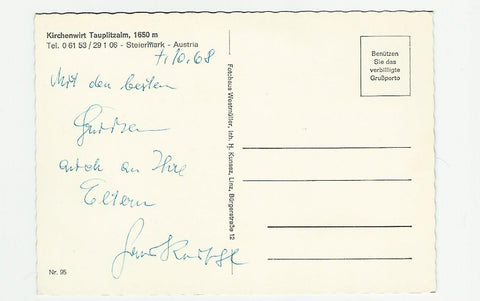 Kirchenwirt Tauplitzalm, 1650 m
Tel. 0 61 53 / 29 1 06 - Steiermark - Austria
7.10.68
Mit den besten
Grüssen
auch an Ihre
Eltern
Nr. 95
Fotohaus Westmüller, Inh. H. Kunasz, Linz, Bürgerstraße 12
Benützen
Sie das
verbilligte
Grußporto